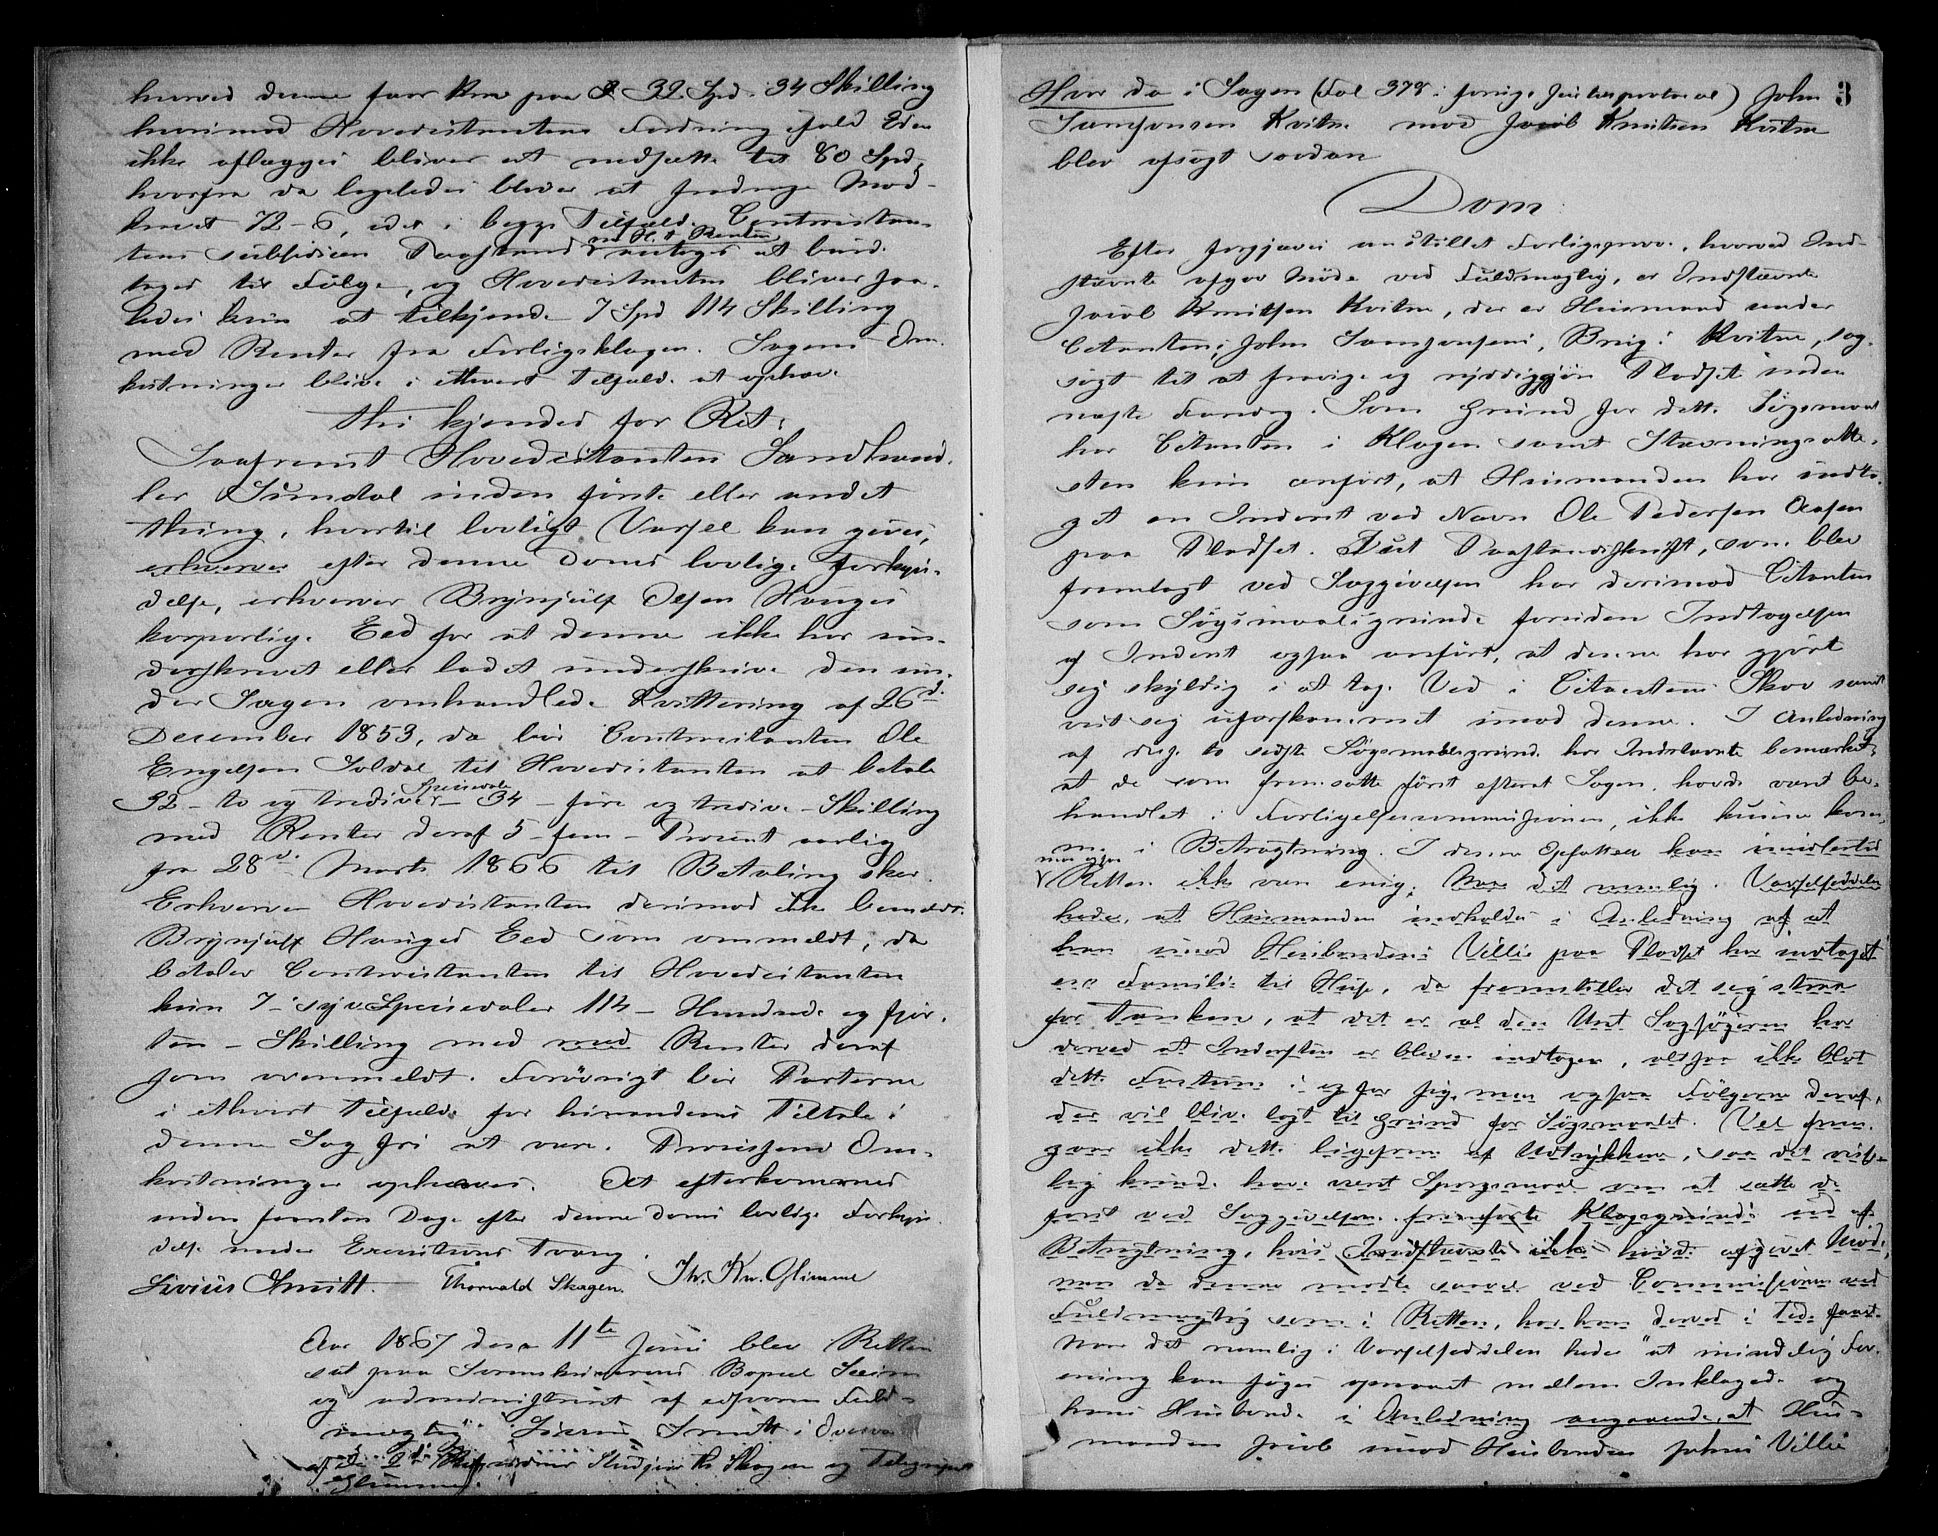 hvorved denne faar Krav paa 32 Spd. 34 Skilling
hvorimod Hovedcitantens Fordring ifald Eden
ikke aflægges bliver at nedsætte til 80 Spd,
hvorfra da ligeledes bliver at fradrage Mod-
kravet 72-6, idet i begge Tilfælde Contracitan-
tens subsidiære Paastand ved H. t. Renten antages at burde
tages til Følge, og Hovedcitanten bliver saa-
ledes kun at tilkjende 7 Spd 114 Skilling
med Renter fra Forligsklagen. Sagens Om-
kostninger blive i ethvert Tilfælde at ophæve.
Thi kjendes for Ret:
Saafremt Hovedcitanten Landhand-
ler Sundal inden første eller andet
Thing, hvortil lovligt Varsel kan gives,
erhverver efter denne Doms lovlige Forkyn-
delse, erhverver Brynjulf Olsen Hauges
korporlige Eed for at denne ikke har un-
derskrevet eller ladet underskrive den un-
der Sagen omhandlede Kvittering af 26d.
December 1853, da bør Contracitanten Ole
Engelsen Soldal til Hovedcitanten at betale
32 - to og tredive Speciedaler - 34 - fire og tredive - Skilling
med Renter deraf 5 - fem - Procent aarlig
fra 28d. Marts 1866 til Betaling sker.
Erhverver Hovedcitanten derimod ikke bemeldte
Brynjulf Hauges Eed som ommeldt, da
betaler Contracitanten til Hovedcitanten
kun 7 - syv Speciedaler 114 - Hundrede og fjor-
ten - Skilling med med Renter deraf
som ovenmeldt. Forøvrigt bør Parterne
i ethvert Tilfælde for hinandens Tiltale i
denne Sag fri at være. Processens Om-
kostninger ophæves. Det efterkommes
inden femten Dage efter denne Doms lovlige Forkyn-
delse under Executions Tvang.
Livius Smitt. Thorvald Skagen. Th. Kn. Glimme
Aar 1867 den 11te Juni blev Retten
sat paa Sorenskriverens Bopæl Seim
og administreret af edsvoren Fuld-
mægtig Livius Smitt i Overvær
af de 2de Skagen og
Glimme.
3
Hvor da i Sagen (Fol 378 i forrige Justitsprotocol) John
Samsonsen Kvitne mod Jacob Knutsen Kvitne
blev afsagt saadan
Dom:
Efter forgjæves anstillet Forligsprøve, hvorved Ind-
stævnte afgav Møde ved Fuldmægtig, er Indstævnte
Jacob Knutsen Kvitne, der er Huusmand under
Citantens, John Samsonsens, Brug i Kvitne, sag-
søgt til at fravige og ryddiggjøre Pladset inden
næste Faredag. Som Grund for dette Søgsmaal
har Citanten i Klagen samt Stævningsatte-
sten kun anført, at Huusmanden har indta-
get en Inderst ved Navn Ole Pedersen Aasen
paa Pladset. I sit Paastandsskrift, som blev
fremlagt ved Saggivelsen har derimod Citanten
som Søgsmaalsgrunde foruden Indtagelsen
af Inderst ogsaa anført, at denne har gjort
sig skyldig i at tage Ved i Citantens Skov samt
viist sig uforskammet imod denne. I Anledning
af disse to sidste Søgsmaalsgrunde har Indstævnte bemærket,
at de som fremsatte først efterat Sagen havde været be-
handlet i Forligelsescommissionen, ikke kunne kom-
me i Betragtning. I denne Opfatten kan imidlertid
Retten ikke være enig; Naar det nemlig i Varselseddelen
heder, at Huusmanden indkaldes i Anledning af at
han imod Huusbondens Villie paa Pladset har indtaget
en Familie til Huse, da fremstiller det sig strax
for Tanken, at det er al den Uret Sagsøgeren har
derved at Indersten er bleven indtagen, altsaa ikke blot
dette Factum i og for sig, men ogsaa Følgerne deraf,
der vil blive lagt til Grund for Søgsmaalet. Vel frem-
gaar ikke dette ligefrem af Udtrykkene, saa det visse-
lig kunde have været Spørgsmaal om at sætte de
først ved Saggivelsen fremførte Klagegrunde ud af
Betragtning, hvis Indstævnte ikke havde afgivet Møde,
men da denne mødte saavel ved Commissionen ved
Fuldmægtig som i Retten, har han derved i Tide faaet
Naar det nemlig i Varselseddelen heder "at mindelig For-
ening kan søges opnaaet mellem Indklagede og
hans Huusbonde i Anledning angaaende, at Huus-
manden Jacob imod Huusbonden Johns Villie